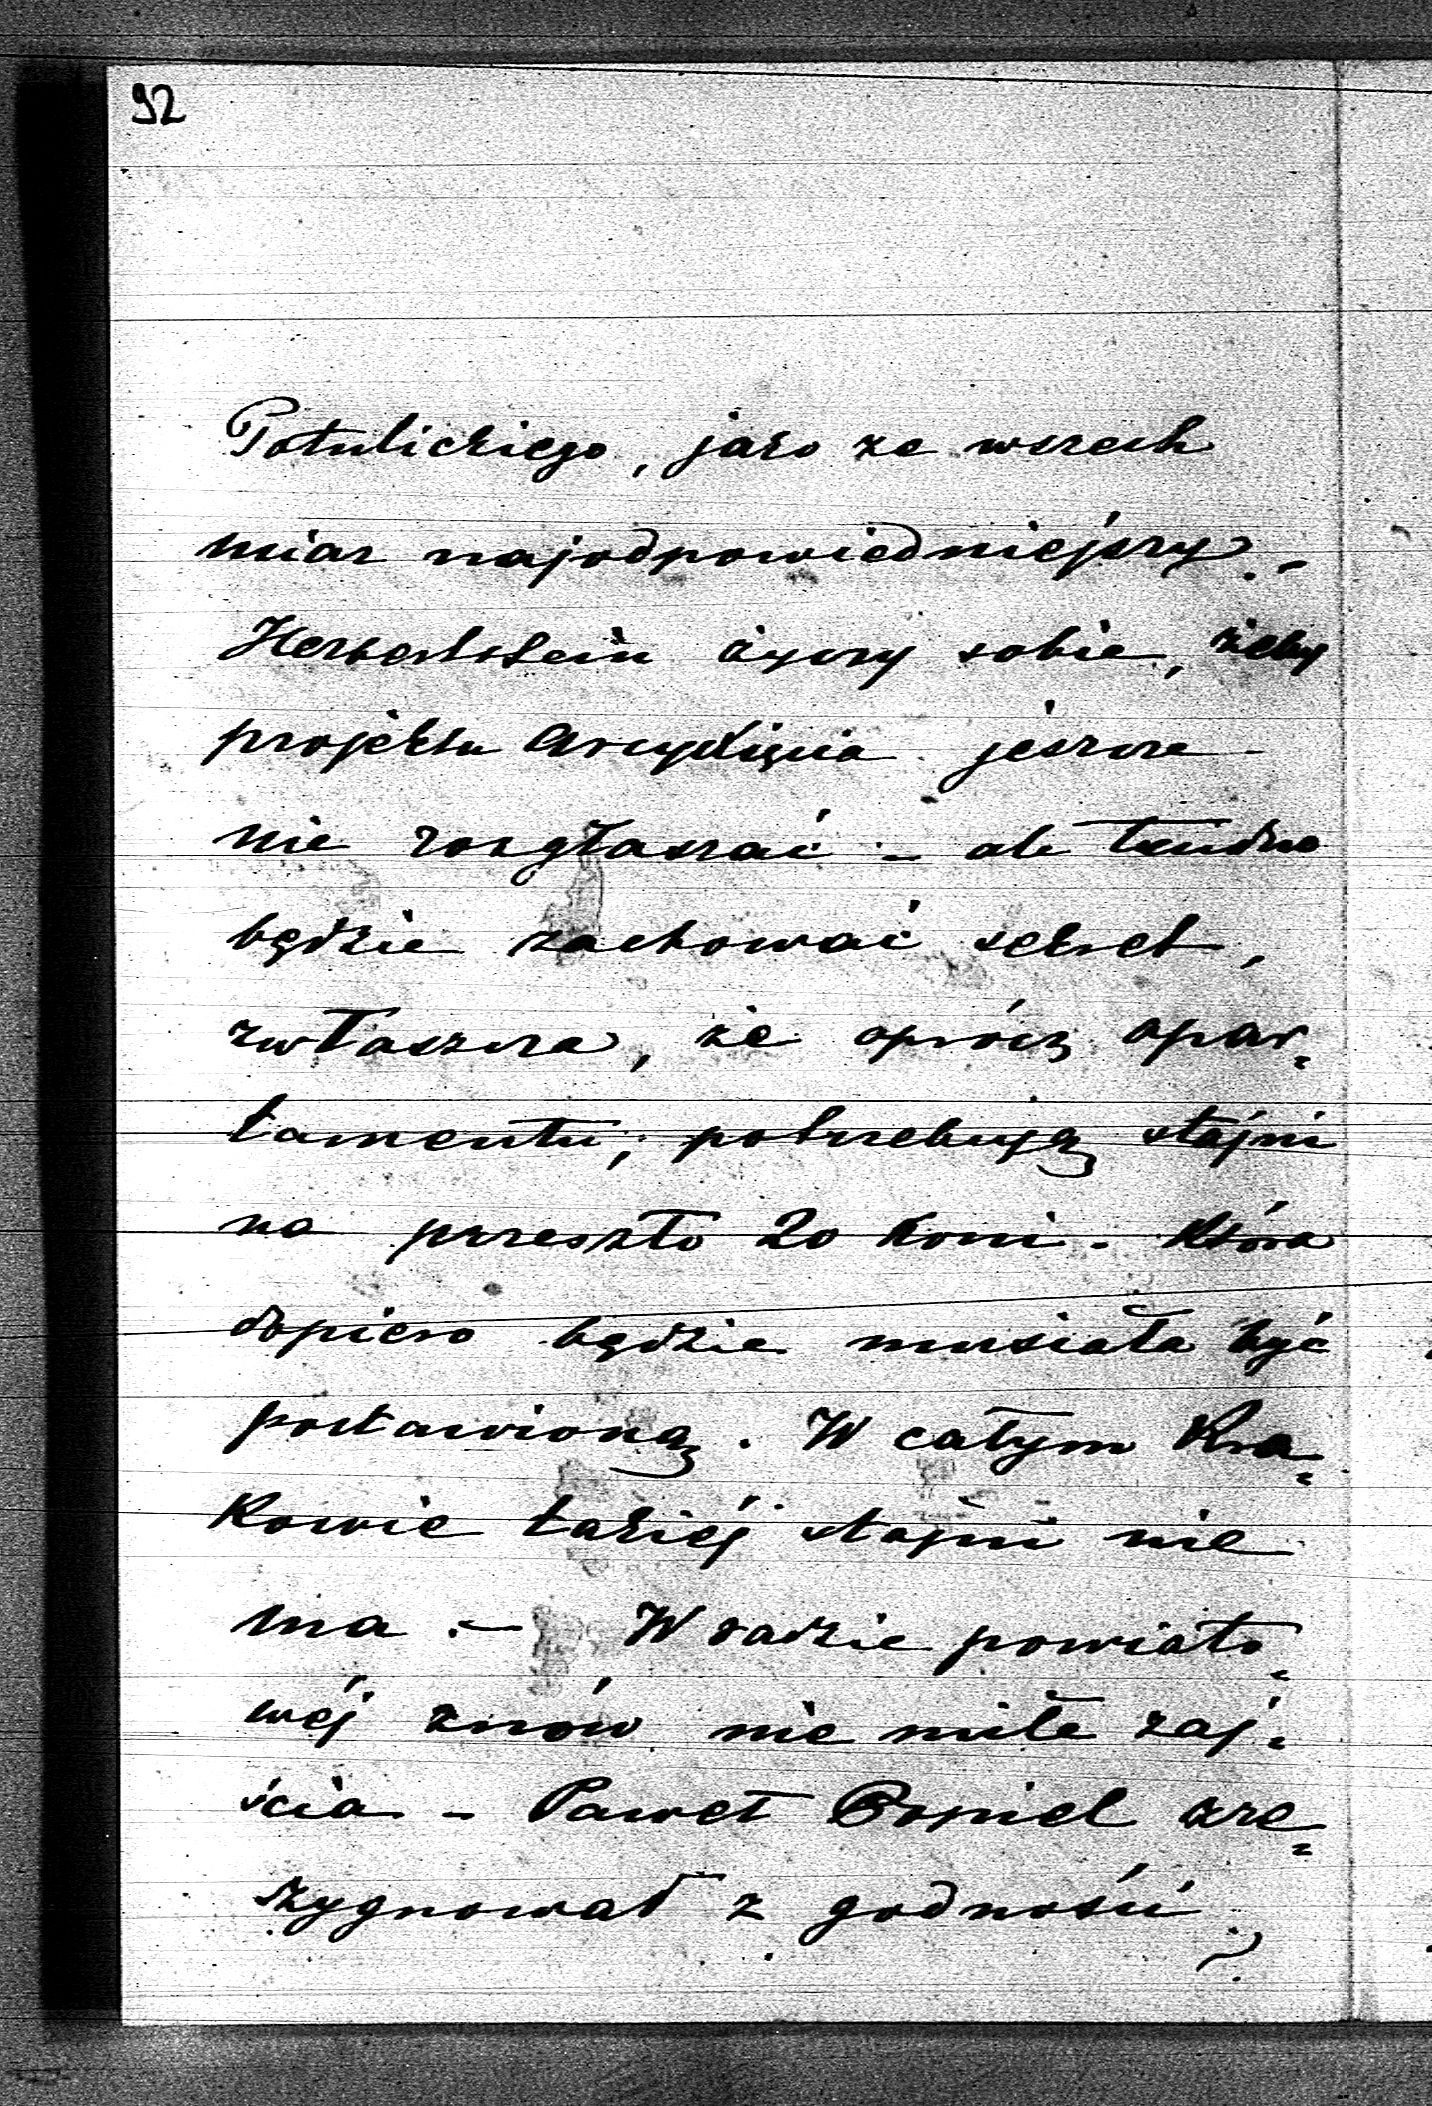 92
Potulickiego, jako ze wszech
miar najodpowiedniejszy. -
Herberstein życzy sobie, żeby
projektu Arcyxięcia jeszcze
nie rozgłaszać - ale trudno
będzie zachować sekret,
zwłaszcza, że oprócz apar=
tamentu, potrzebują stajni
na przeszło 20 koni. Która
dopiero będzie musiała być
postawioną. W całym Kra=
kowie takiéj stajni nie
ma. - W radzie powiato=
wéj znów nie miłe zaj=
ścia - Paweł Popiel zre=
zygnował z godności